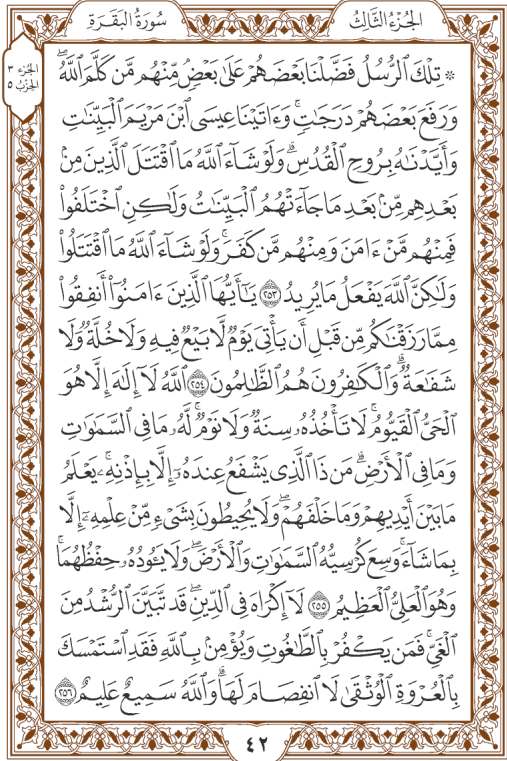 الجُزْءُ الثَّالِثُ
سُورَةُ البَقَرَةِ
الجُزء ٣
الحِزب ٥
۞ تِلْكَ ٱلرُّسُلُ فَضَّلْنَا بَعْضَهُمْ عَلَىٰ بَعْضٍۘ مِّنْهُم مَّن كَلَّمَ ٱللَّهُۖ
وَرَفَعَ بَعْضَهُمْ دَرَجَٰتٍۚ وَءَاتَيْنَا عِيسَى ٱبْنَ مَرْيَمَ ٱلْبَيِّنَٰتِ
وَأَيَّدْنَٰهُ بِرُوحِ ٱلْقُدُسِۗ وَلَوْ شَآءَ ٱللَّهُ مَا ٱقْتَتَلَ ٱلَّذِينَ مِنۢ
بَعْدِهِم مِّنۢ بَعْدِ مَا جَآءَتْهُمُ ٱلْبَيِّنَٰتُ وَلَٰكِنِ ٱخْتَلَفُوا۟
فَمِنْهُم مَّنْ ءَامَنَ وَمِنْهُم مَّن كَفَرَۚ وَلَوْ شَآءَ ٱللَّهُ مَا ٱقْتَتَلُوا۟
وَلَٰكِنَّ ٱللَّهَ يَفْعَلُ مَا يُرِيدُ ٢٥٣ يَٰٓأَيُّهَا ٱلَّذِينَ ءَامَنُوٓا۟ أَنفِقُوا۟
مِمَّا رَزَقْنَٰكُم مِّن قَبْلِ أَن يَأْتِىَ يَوْمٌ لَّا بَيْعٌ فِيهِ وَلَا خُلَّةٌ وَلَا
شَفَٰعَةٌۗ وَٱلْكَٰفِرُونَ هُمُ ٱلظَّٰلِمُونَ ٢٥٤ ٱللَّهُ لَآ إِلَٰهَ إِلَّا هُوَ
ٱلْحَىُّ ٱلْقَيُّومُۚ لَا تَأْخُذُهُۥ سِنَةٌ وَلَا نَوْمٌۚ لَّهُۥ مَا فِى ٱلسَّمَٰوَٰتِ
وَمَا فِى ٱلْأَرْضِۗ مَن ذَا ٱلَّذِى يَشْفَعُ عِندَهُۥٓ إِلَّا بِإِذْنِهِۦۚ يَعْلَمُ
مَا بَيْنَ أَيْدِيهِمْ وَمَا خَلْفَهُمْۖ وَلَا يُحِيطُونَ بِشَىْءٍ مِّنْ عِلْمِهِۦٓ إِلَّا
بِمَا شَآءَۚ وَسِعَ كُرْسِيُّهُ ٱلسَّمَٰوَٰتِ وَٱلْأَرْضَۖ وَلَا يَـُٔودُهُۥ حِفْظُهُمَاۚ
وَهُوَ ٱلْعَلِىُّ ٱلْعَظِيمُ ٢٥٥ لَآ إِكْرَاهَ فِى ٱلدِّينِۖ قَد تَّبَيَّنَ ٱلرُّشْدُ مِنَ
ٱلْغَىِّۚ فَمَن يَكْفُرْ بِٱلطَّٰغُوتِ وَيُؤْمِنۢ بِٱللَّهِ فَقَدِ ٱسْتَمْسَكَ
بِٱلْعُرْوَةِ ٱلْوُثْقَىٰ لَا ٱنفِصَامَ لَهَاۗ وَٱللَّهُ سَمِيعٌ عَلِيمٌ ٢٥٦
٤٢